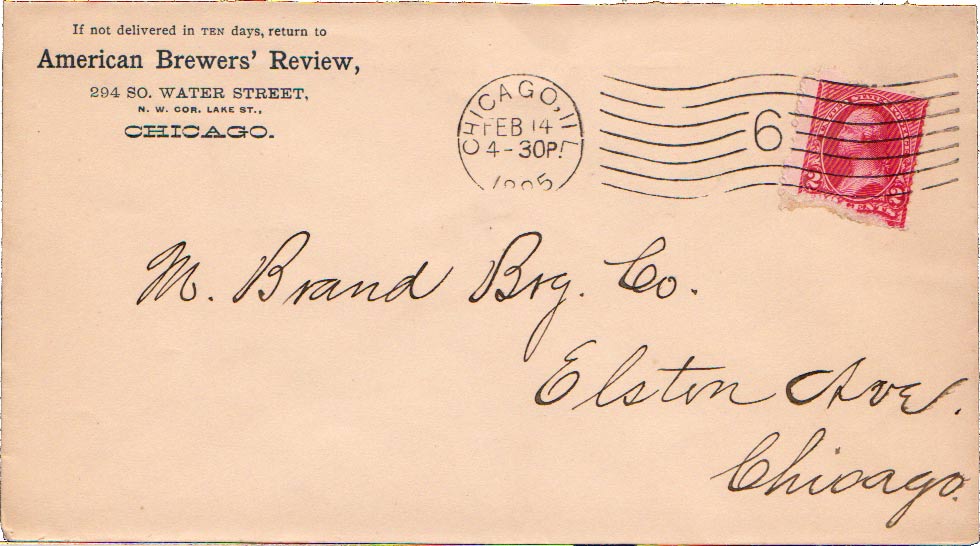 If not delivered in TEN days, return to
American Brewers' Review,
294 SO. WATER STREET,
N. W. COR. LAKE ST.,
CHICAGO.
CHICAGO, ILL
FEB 14
4-30P.
6
2 2
M. Brand Brg. Co.
Elston Ave.
Chicago.